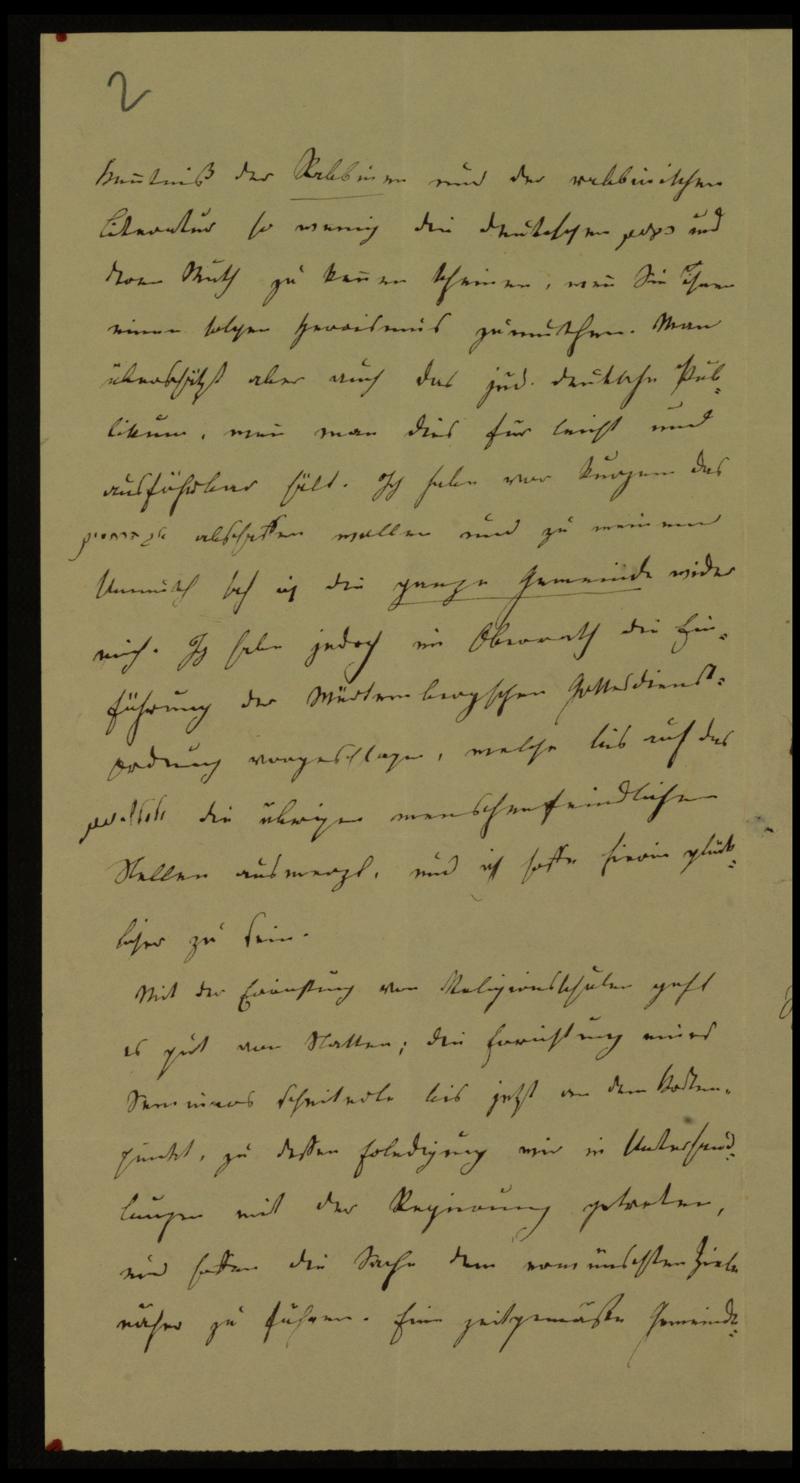 2
Kentniß der Rabbinen und der rabbinischen
Literatur so wenig die deutschen und
deren Muth zu kennen scheinen, wen Sie Ihnen
einen solchen Heroismus zumuthen. Man
überschätzt aber auch das jüd. deutsche Pub-
likum, wen man dies für leicht und
ausführbar hält. Ich habe vor kurzem das
abschaffen wollen und zu meinem
Unmuth sah ich die ganze Gemeinde wider
mich. Ich habe jedoch im Oberrath die Ein-
führung der Würtembergschen Gottesdienst-
ordnung vorgeschlagen, welche bis auf das
die übrigen menschenfeindlichen
Stellen ausmerzt, und ich hoffe hierin glück-
licher zu sein.
Mit der Errichtung von Religionsschulen geht
es gut von Statten; die Errichtung eines
Seminars scheiterte bis jetzt an dem Kosten-
punkt, zu dessen Erledigung wir in Unterhand-
lungen mit der Regierung getreten,
und hoffen die Sache dem erwünschten Ziele
näher zu führen. Eine zeitgemäße Gemeinde-